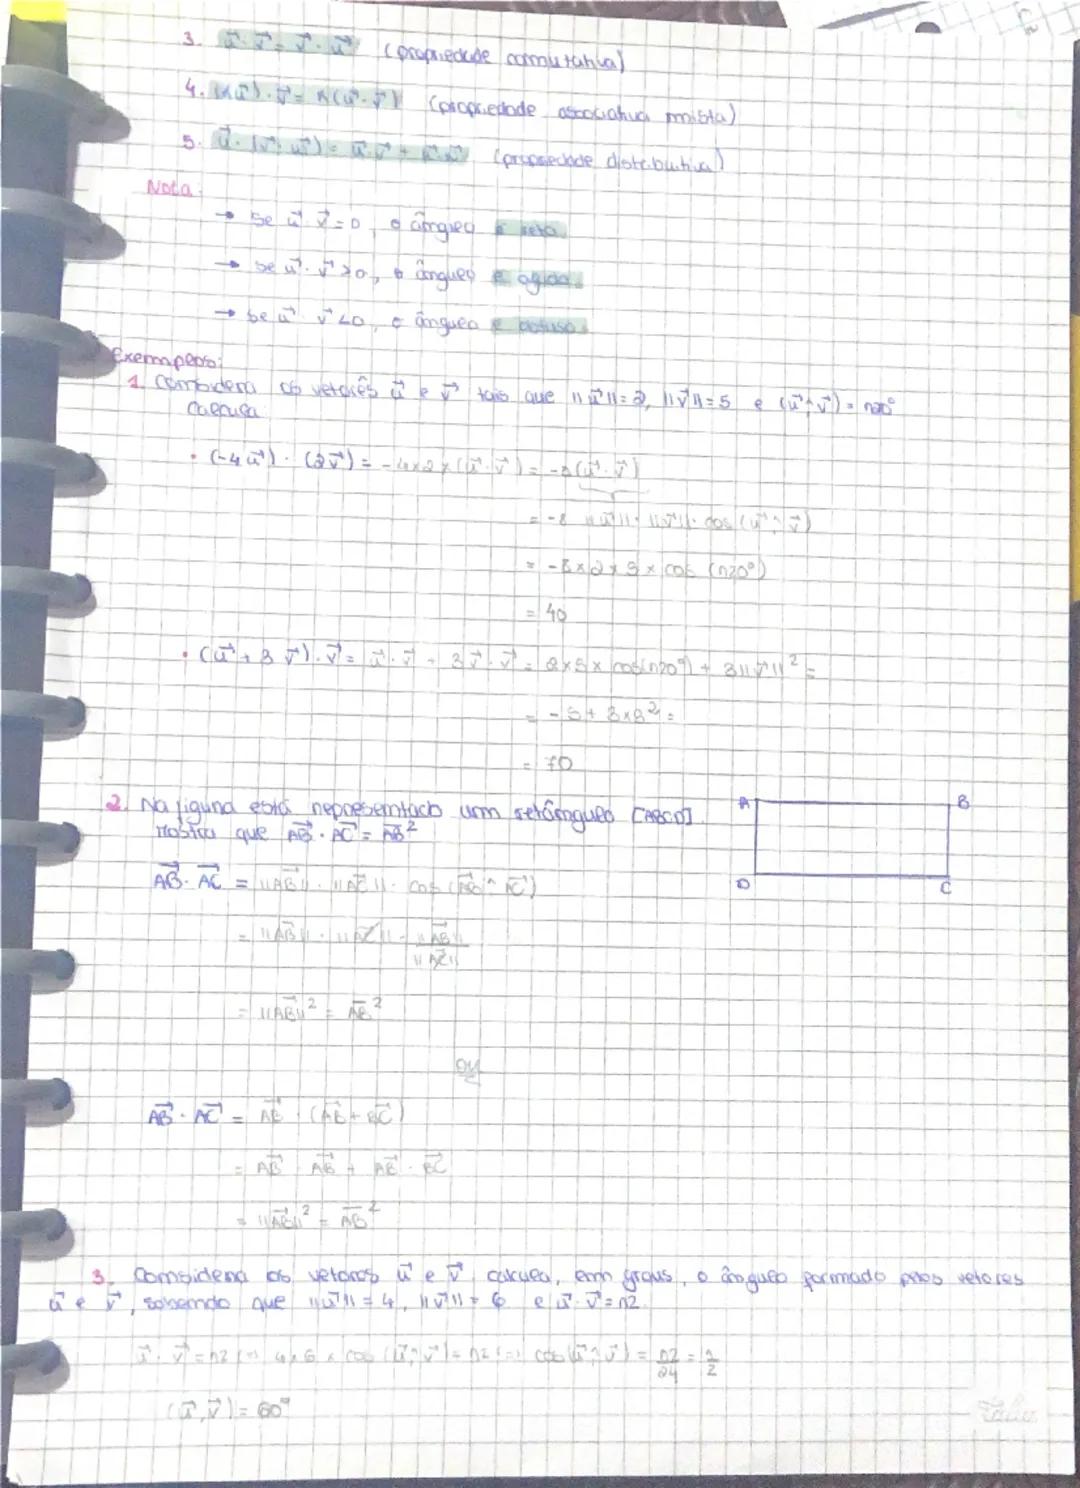 3. u⃗·v⃗ = v⃗·u⃗ (propriedade comutativa)
4. (λu⃗)·v⃗ = λ(u⃗·v⃗) (propriedade associativa mista)
5. u⃗·(v⃗+w⃗) = u⃗·v⃗ + u⃗·w⃗ (propriedade distributiva)
Nota:
→ Se u⃗·v⃗=0, o ângulo é reto.
→ Se u⃗·v⃗>0, o ângulo é agudo.
→ Se u⃗·v⃗<0, o ângulo é obtuso.
Exemplos:
1. Considera os vetores u⃗ e v⃗ tais que ||u⃗||=2, ||v⃗||=5 e (u⃗^v⃗) = 120°
Calcula
• (-4u⃗)·(2v⃗) = -4×2×(u⃗·v⃗) = -8(u⃗·v⃗)
= -8 ||u⃗||·||v⃗||·cos(u⃗^v⃗)
= -8×2×5×cos(120°)
= 40
• (u⃗+3v⃗)·v⃗ = u⃗·v⃗ + 3v⃗·v⃗ = 2×5×cos(120°) + 3||v⃗||² =
= -5+3×5² =
= 70
2. Na figura está representado um retângulo [ABCD].
Mostra que AB⃗·AC⃗ = AB²
A B
D C
AB⃗·AC⃗ = ||AB⃗||·||AC⃗||·cos(AB⃗^AC⃗)
= ||AB⃗||·||AC⃗||·||AB⃗||/||AC⃗||
= ||AB⃗||² = AB²
ou
AB⃗·AC⃗ = AB⃗·(AB⃗+BC⃗)
= AB⃗·AB⃗ + AB⃗·BC⃗
= ||AB⃗||² = AB²
3. Considera os vetores u⃗ e v⃗, calcula, em graus, o ângulo formado pelos vetores
u⃗ e v⃗, sabendo que ||u⃗||=4, ||v⃗||=6 e u⃗·v⃗=12.
u⃗·v⃗=12 (=) 4×6×cos(u⃗^v⃗)=12 (=) cos(u⃗^v⃗) = 12/24 = 1/2
(u⃗,v⃗) = 60°